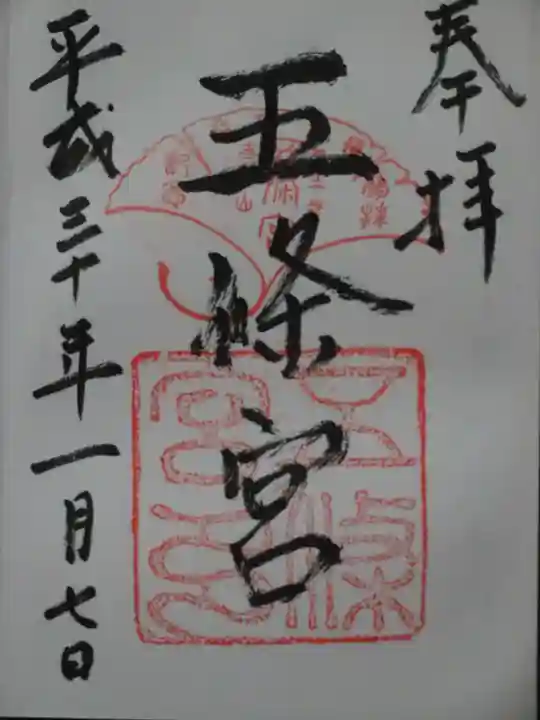 奉拝
五條宮
平成三十年一月七日